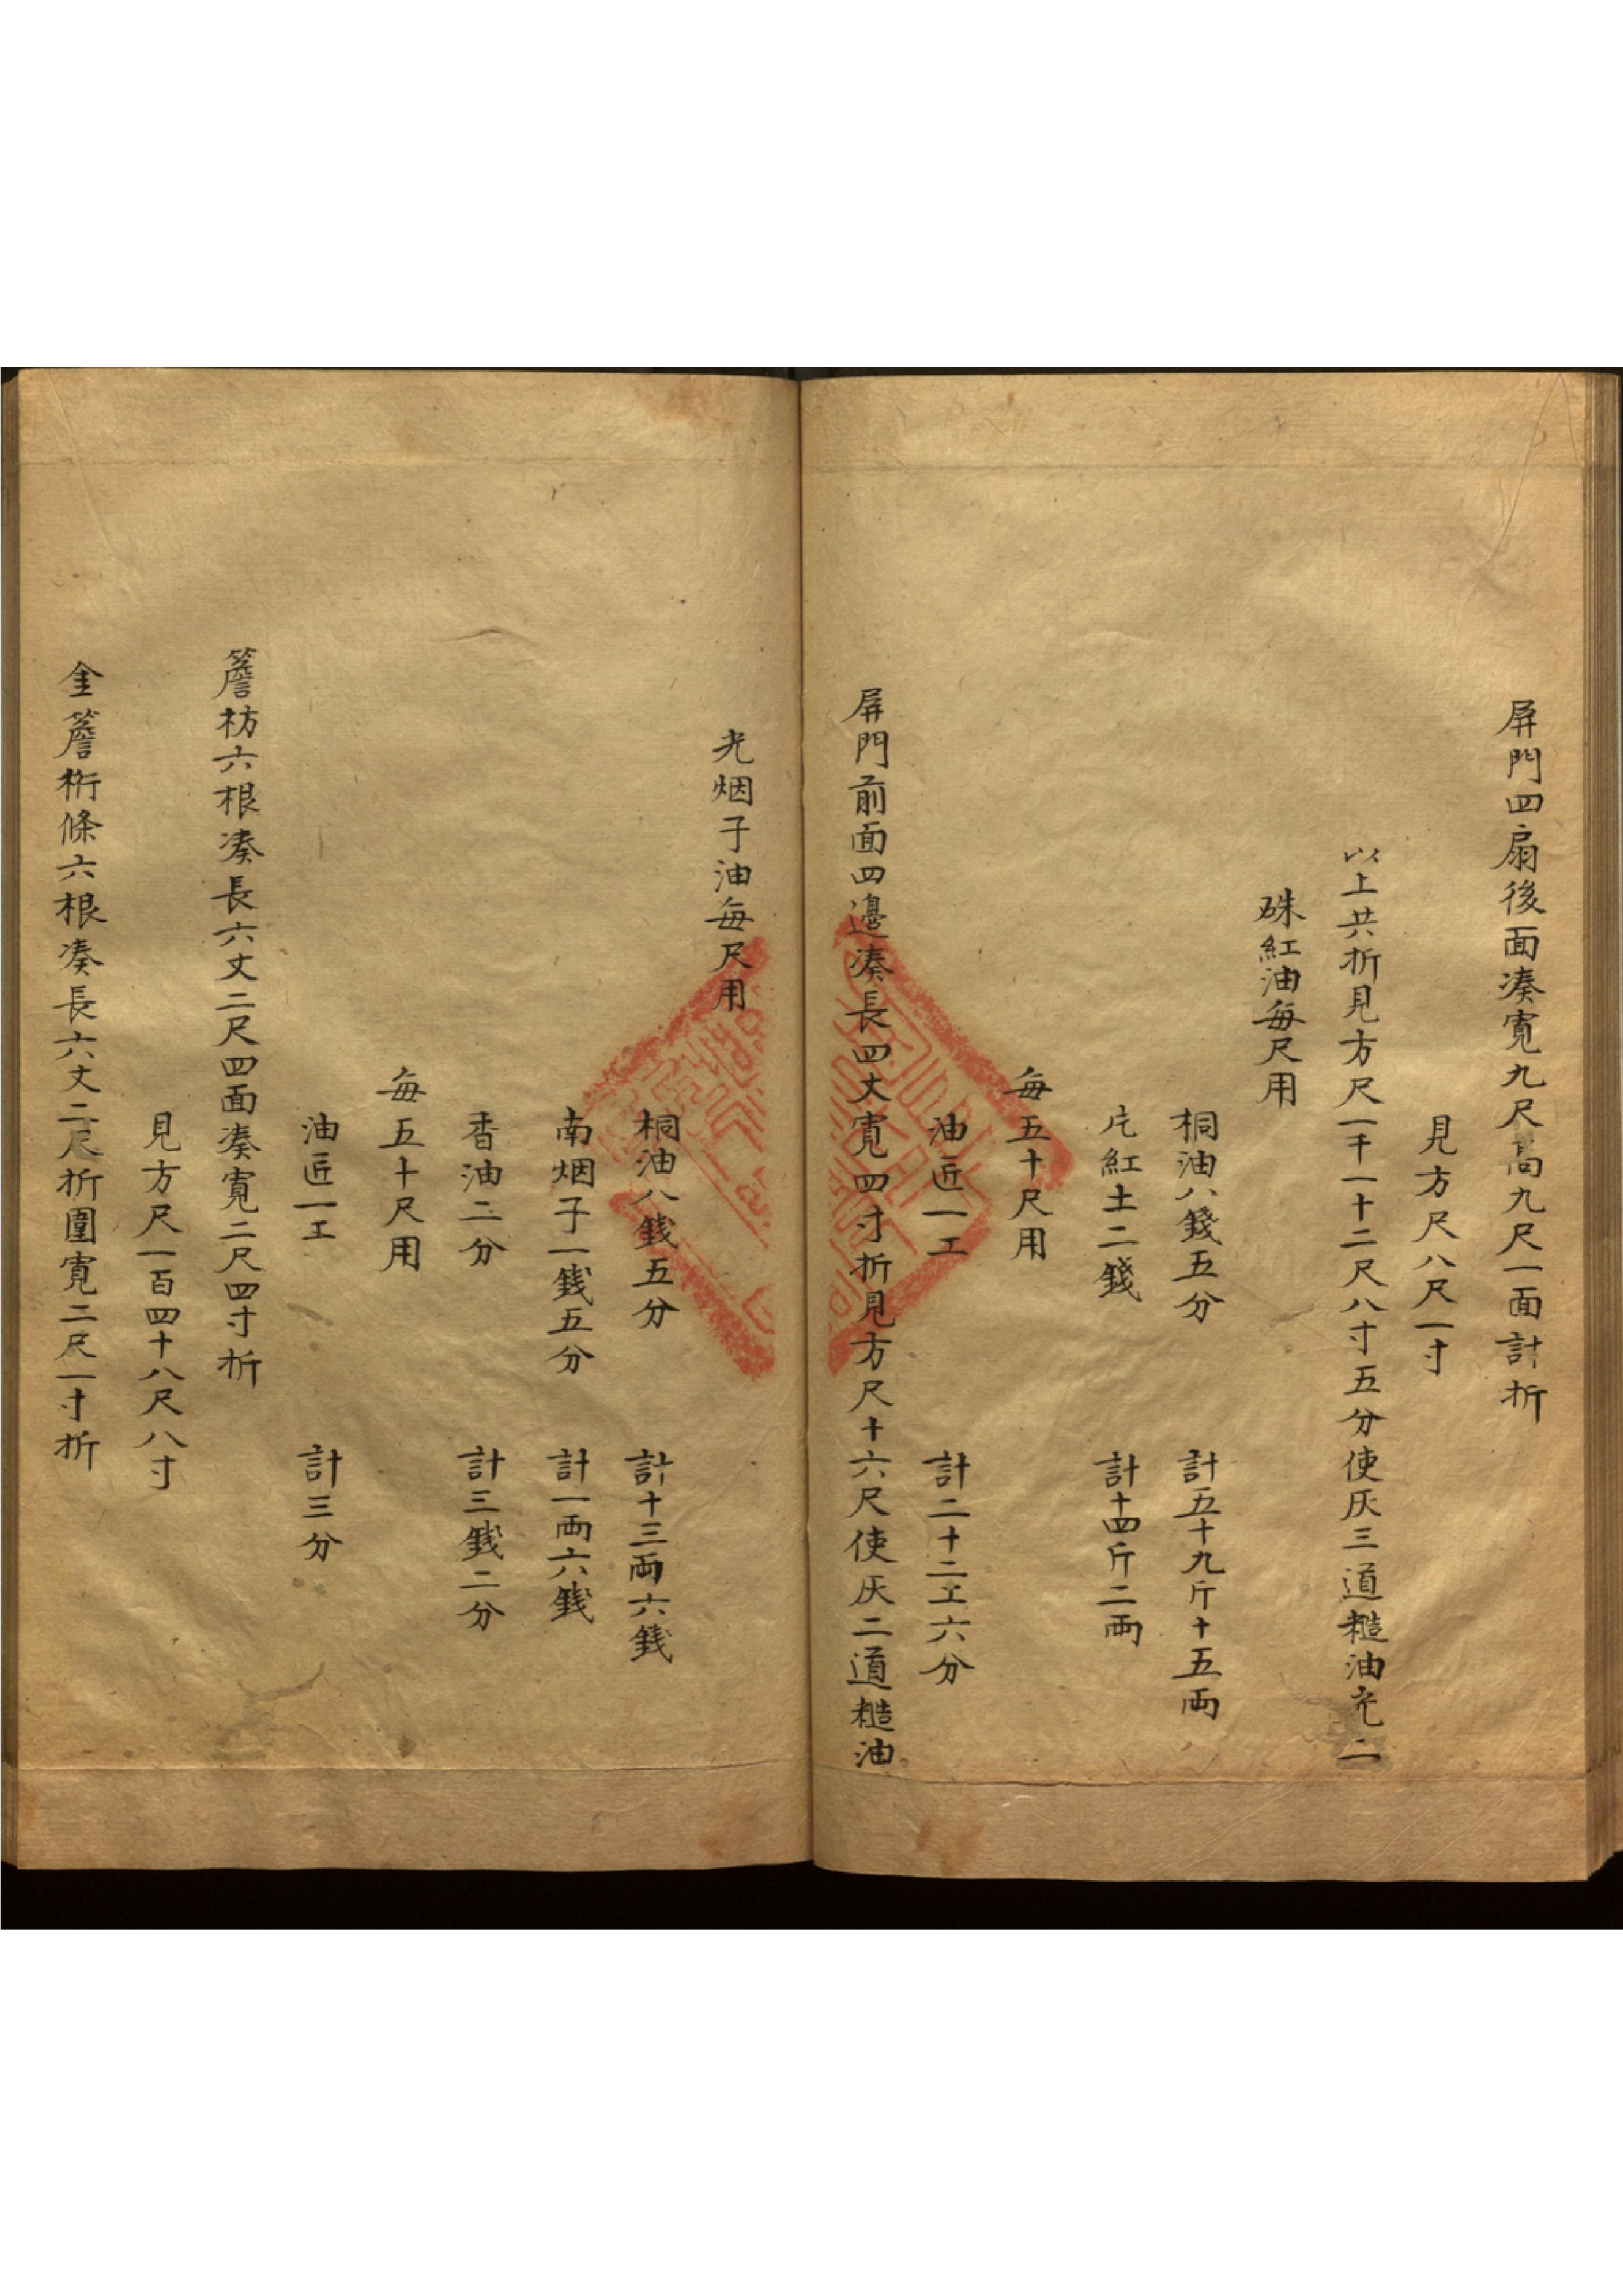 屏門四扇後面凑寛九尺高九尺一面計折
見方尺八尺一寸
以上共折見方尺一千一十二尺八寸五分使灰三道糙油光二
硃紅油每尺用
桐油八錢五分 計五十九斤十五両
片紅土二錢 計十四斤二両
每五十尺用
油匠一工 計二十二工六分
屏門前面四邊凑長四丈寛四寸折見方尺十六尺使灰二道糙油
光烟子油每尺用
桐油八銭五分 計十三両六銭
南烟子一銭五分 計一両六銭
香油二分 計三銭二分
每五十尺用
油匠一工 計三分
簷枋六根凑長六丈二尺四面凑寛二尺四寸折
見方尺一百四十八尺八寸
金簷桁條六根凑長六丈二尺折圍寛二尺一寸折